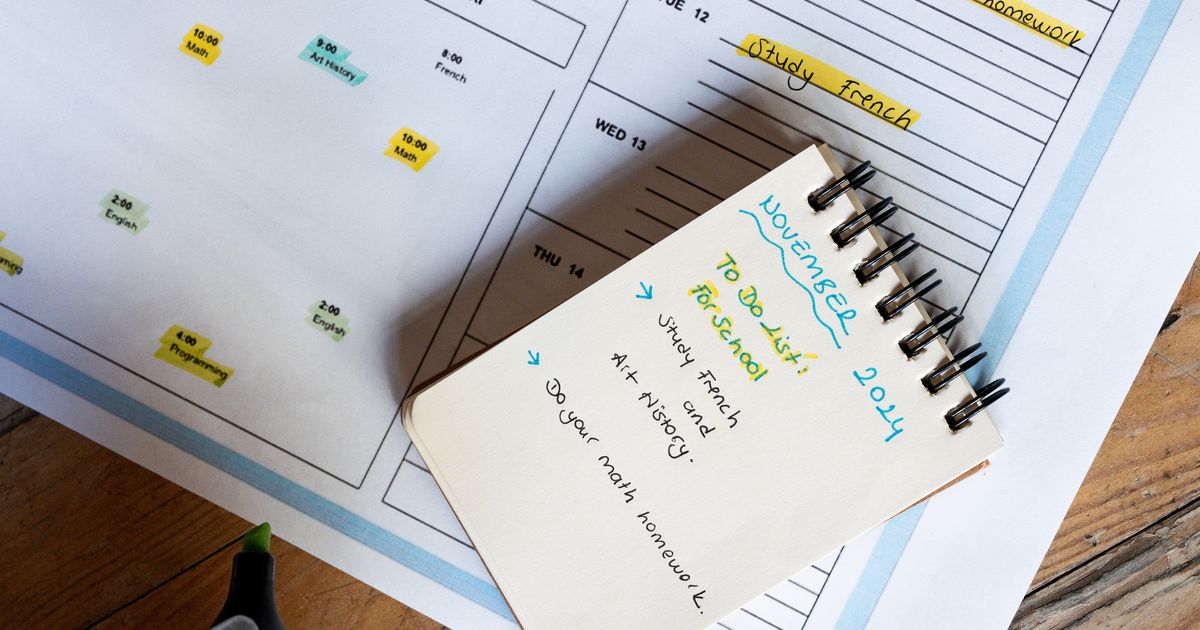 10:00
Math
9:00
Art History
8:00
French
10:00
Math
2:00
English
2:00
English
4:00
Programming
12
homework
Study French
WED 13
THU 14
NOVEMBER 2024
To Do List:
For School
Study French
and
Art History.
Do your math homework.